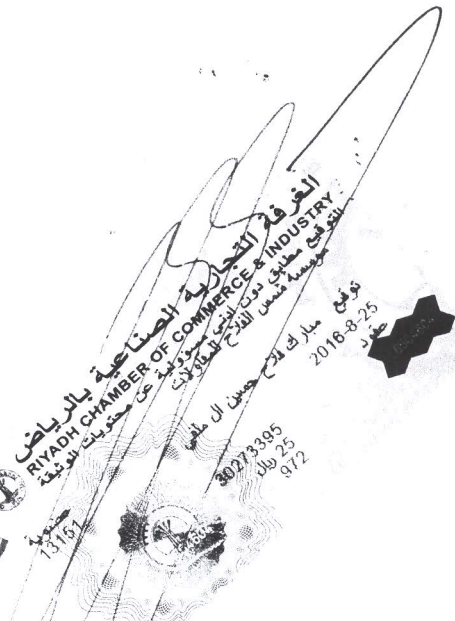 الغرفة التجارية الصناعية بالرياض
RIYADH CHAMBER OF COMMERCE & INDUSTRY
التوقيع مطابق دون ادنى مسؤولية عن محتويات الوثيقة
مؤسسة شمس الفلاح للمقاولات
توقيع مبارك فلاح حسين ال
2016-8-25
عقود
30273395
25 ريال
972
عضوية
13151